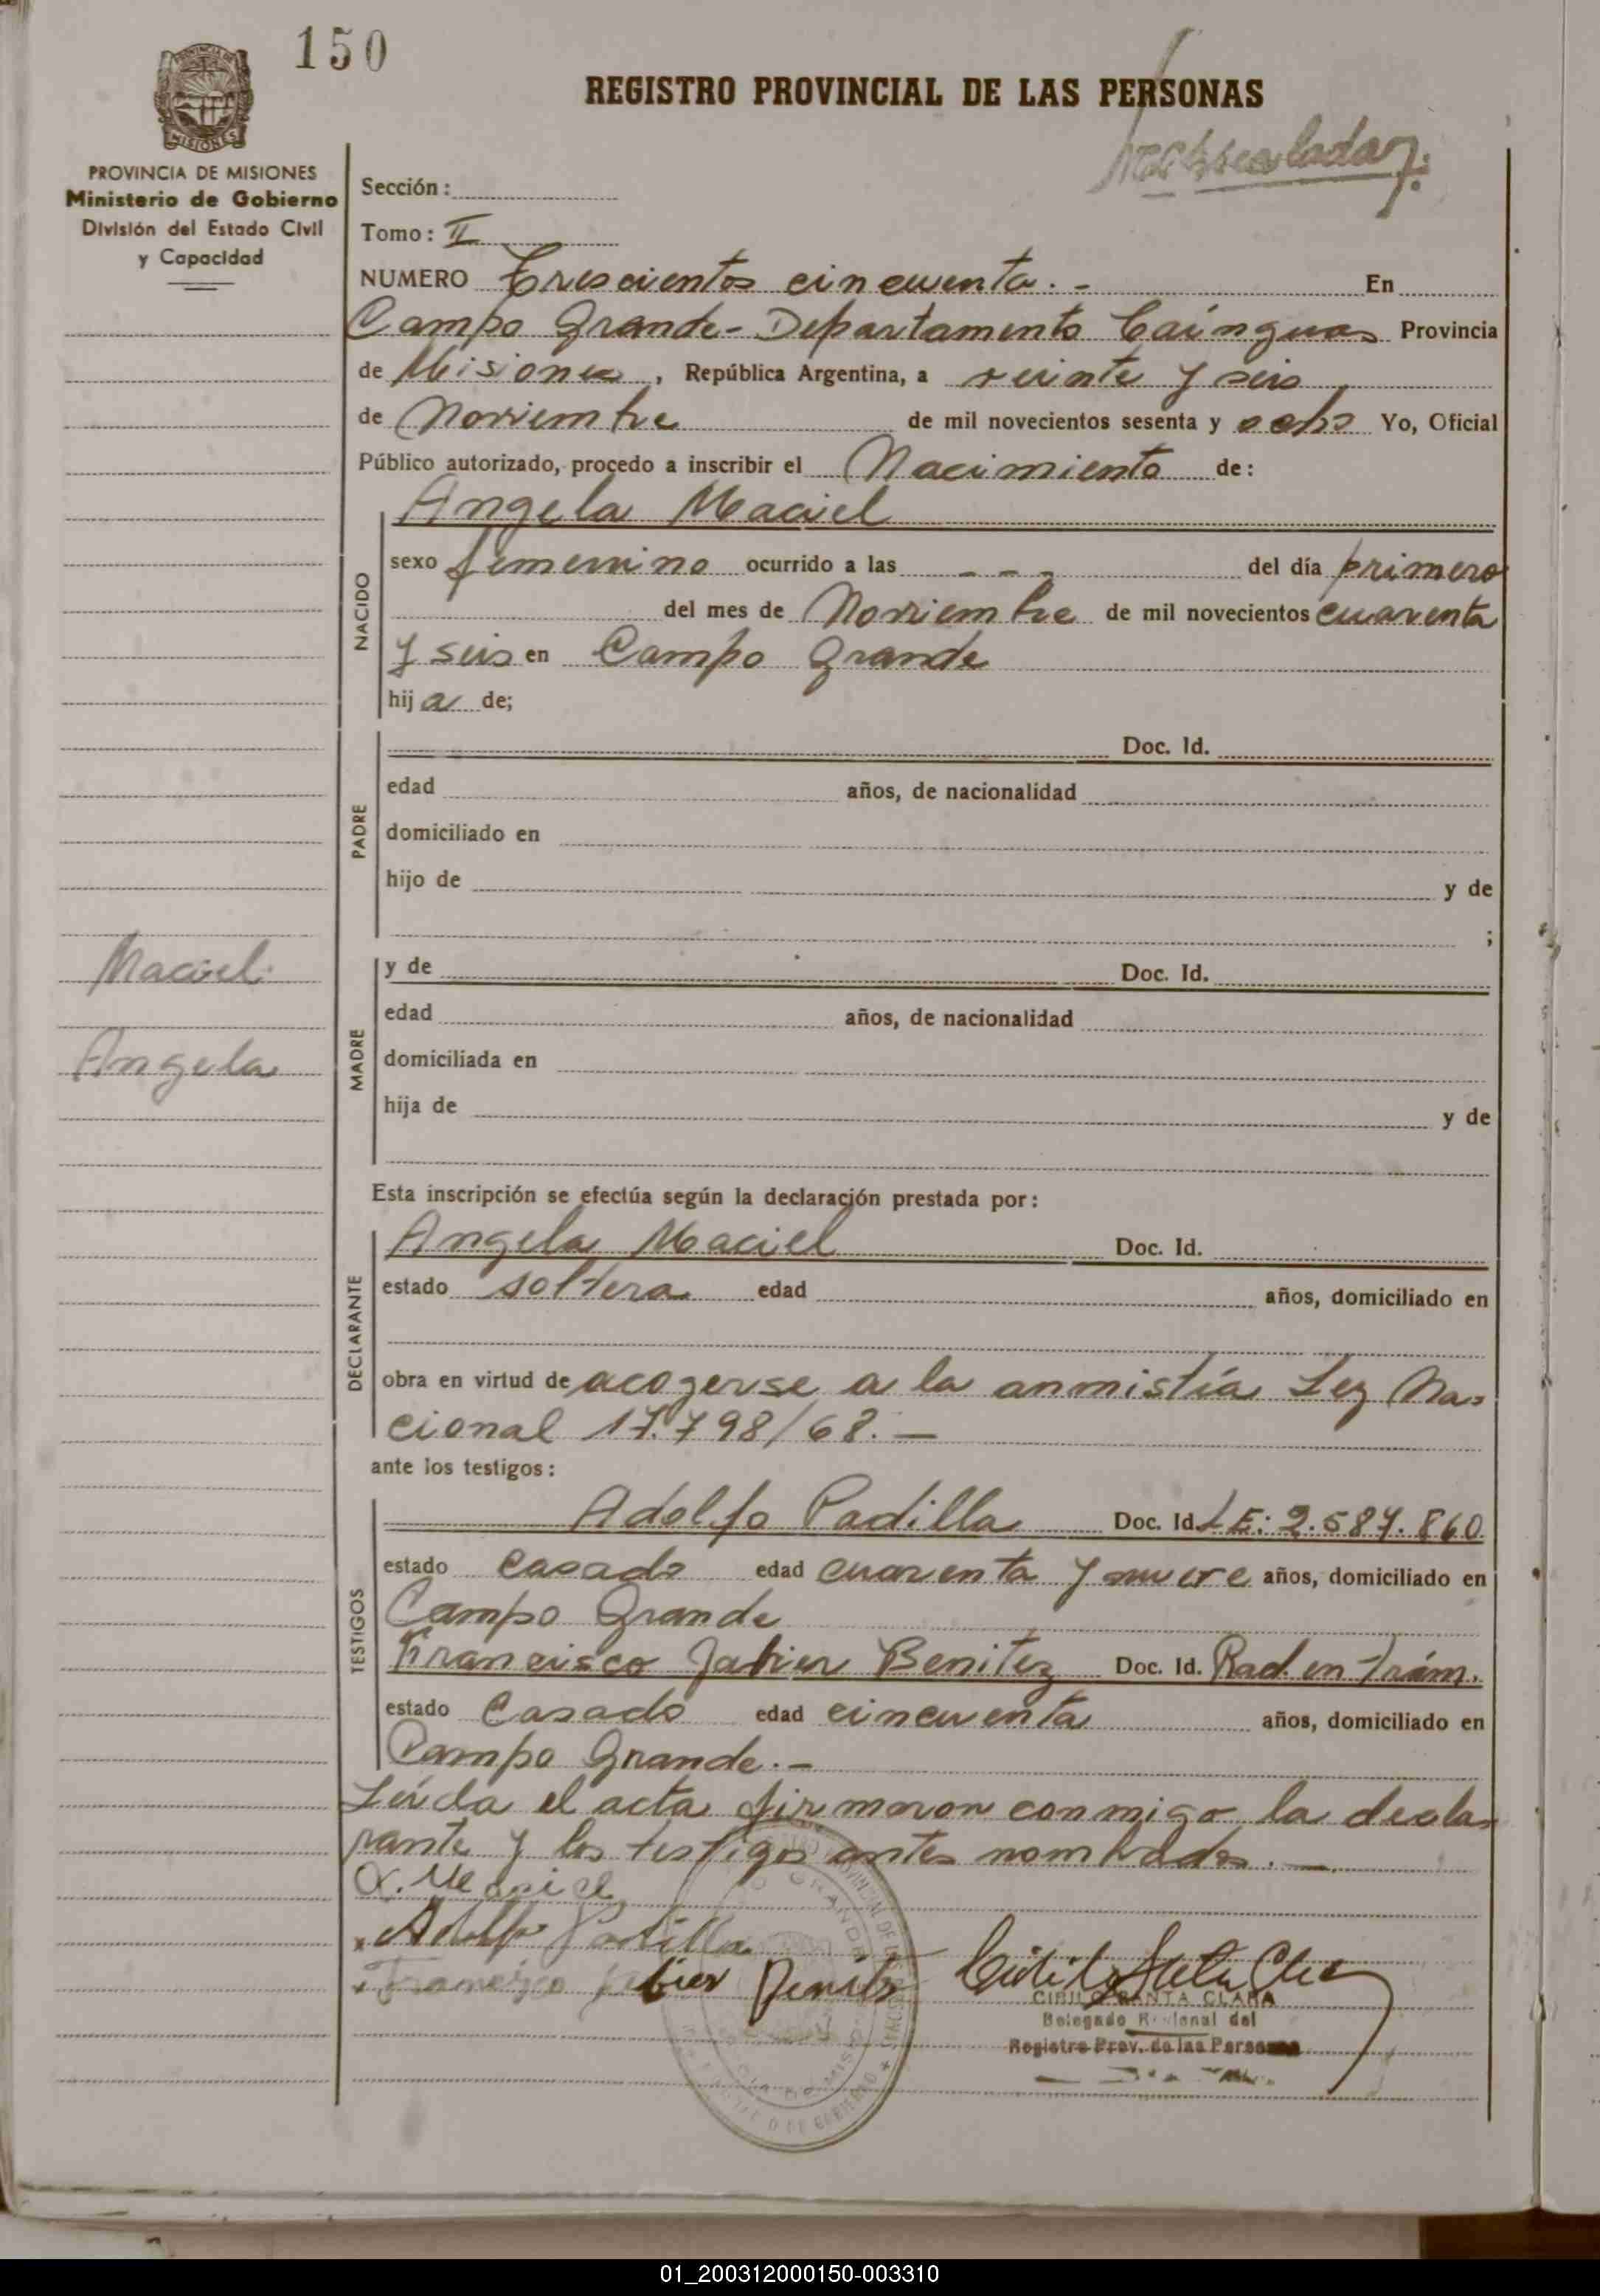 150
REGISTRO PROVINCIAL DE LAS PERSONAS
MISIONES
PROVINCIA DE MISIONES
Ministerio de Gobierno
División del Estado Civil
y Capacidad
Sección:
Tomo: II
NUMERO Trescientos cincuenta.- En
Campo Grande - Departamento Cainguas Provincia
de Misiones, República Argentina, a veinte y seis
de Noviembre de mil novecientos sesenta y ocho Yo, Oficial
Público autorizado, procedo a inscribir el Nacimiento de:
Angela Maciel
NACIDO
sexo femenino ocurrido a las - - - del día primero
del mes de Noviembre de mil novecientos cuarenta
y seis en Campo Grande
hija de;
PADRE
Doc. Id.
edad años, de nacionalidad
domiciliado en
hijo de y de
;
Maciel
Angela
MADRE
y de Doc. Id.
edad años, de nacionalidad
domiciliada en
hija de y de
Esta inscripción se efectúa según la declaración prestada por:
DECLARANTE
Angela Maciel Doc. Id.
estado soltera edad años, domiciliado en
obra en virtud de acogerse a la anmistía Ley Na=
cional 17.798/68.-
ante los testigos:
TESTIGOS
Adolfo Padilla Doc. Id. L E: 2.587.860
estado casado edad cuarenta y nueve años, domiciliado en
Campo Grande
Francisco Jabier Benitez Doc. Id. Rad. en Trám.
estado Casado edad cincuenta años, domiciliado en
Campo Grande.-
Leída el acta firmaron conmigo la decla
rante y los testigos antes nombrados.-
Adolfo Padilla
Francisco Jabier Benites
CIRILO SANTA CLARA
Delegado Regional del
Registro Prov. de las Personas
01_200312000150-003310